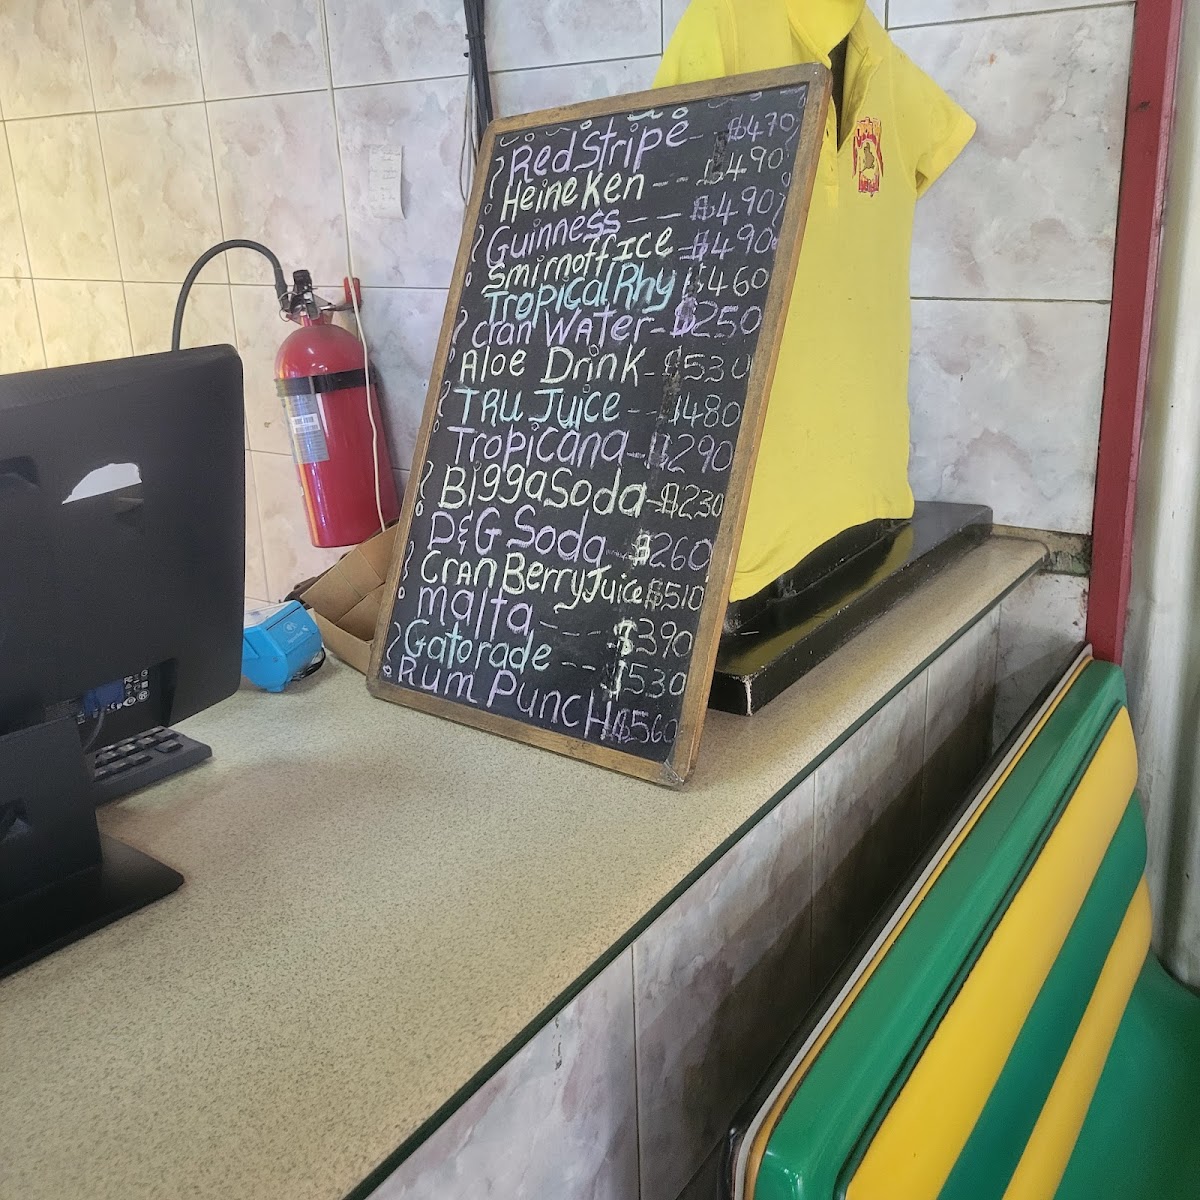 Red Stripe - $470
HeineKen -- $490
Guinness -- $490
Smirnoff ICe - $490
TropicalRhy $460
Cran WATer - $250
Aloe Drink - $530
TRU Juice -- $480
Tropicana - $290
Bigga Soda - $230
D&G Soda - $260
CrAn Berry Juice $510
malta --- $390
Gatorade -- $530
Rum PuncH $560